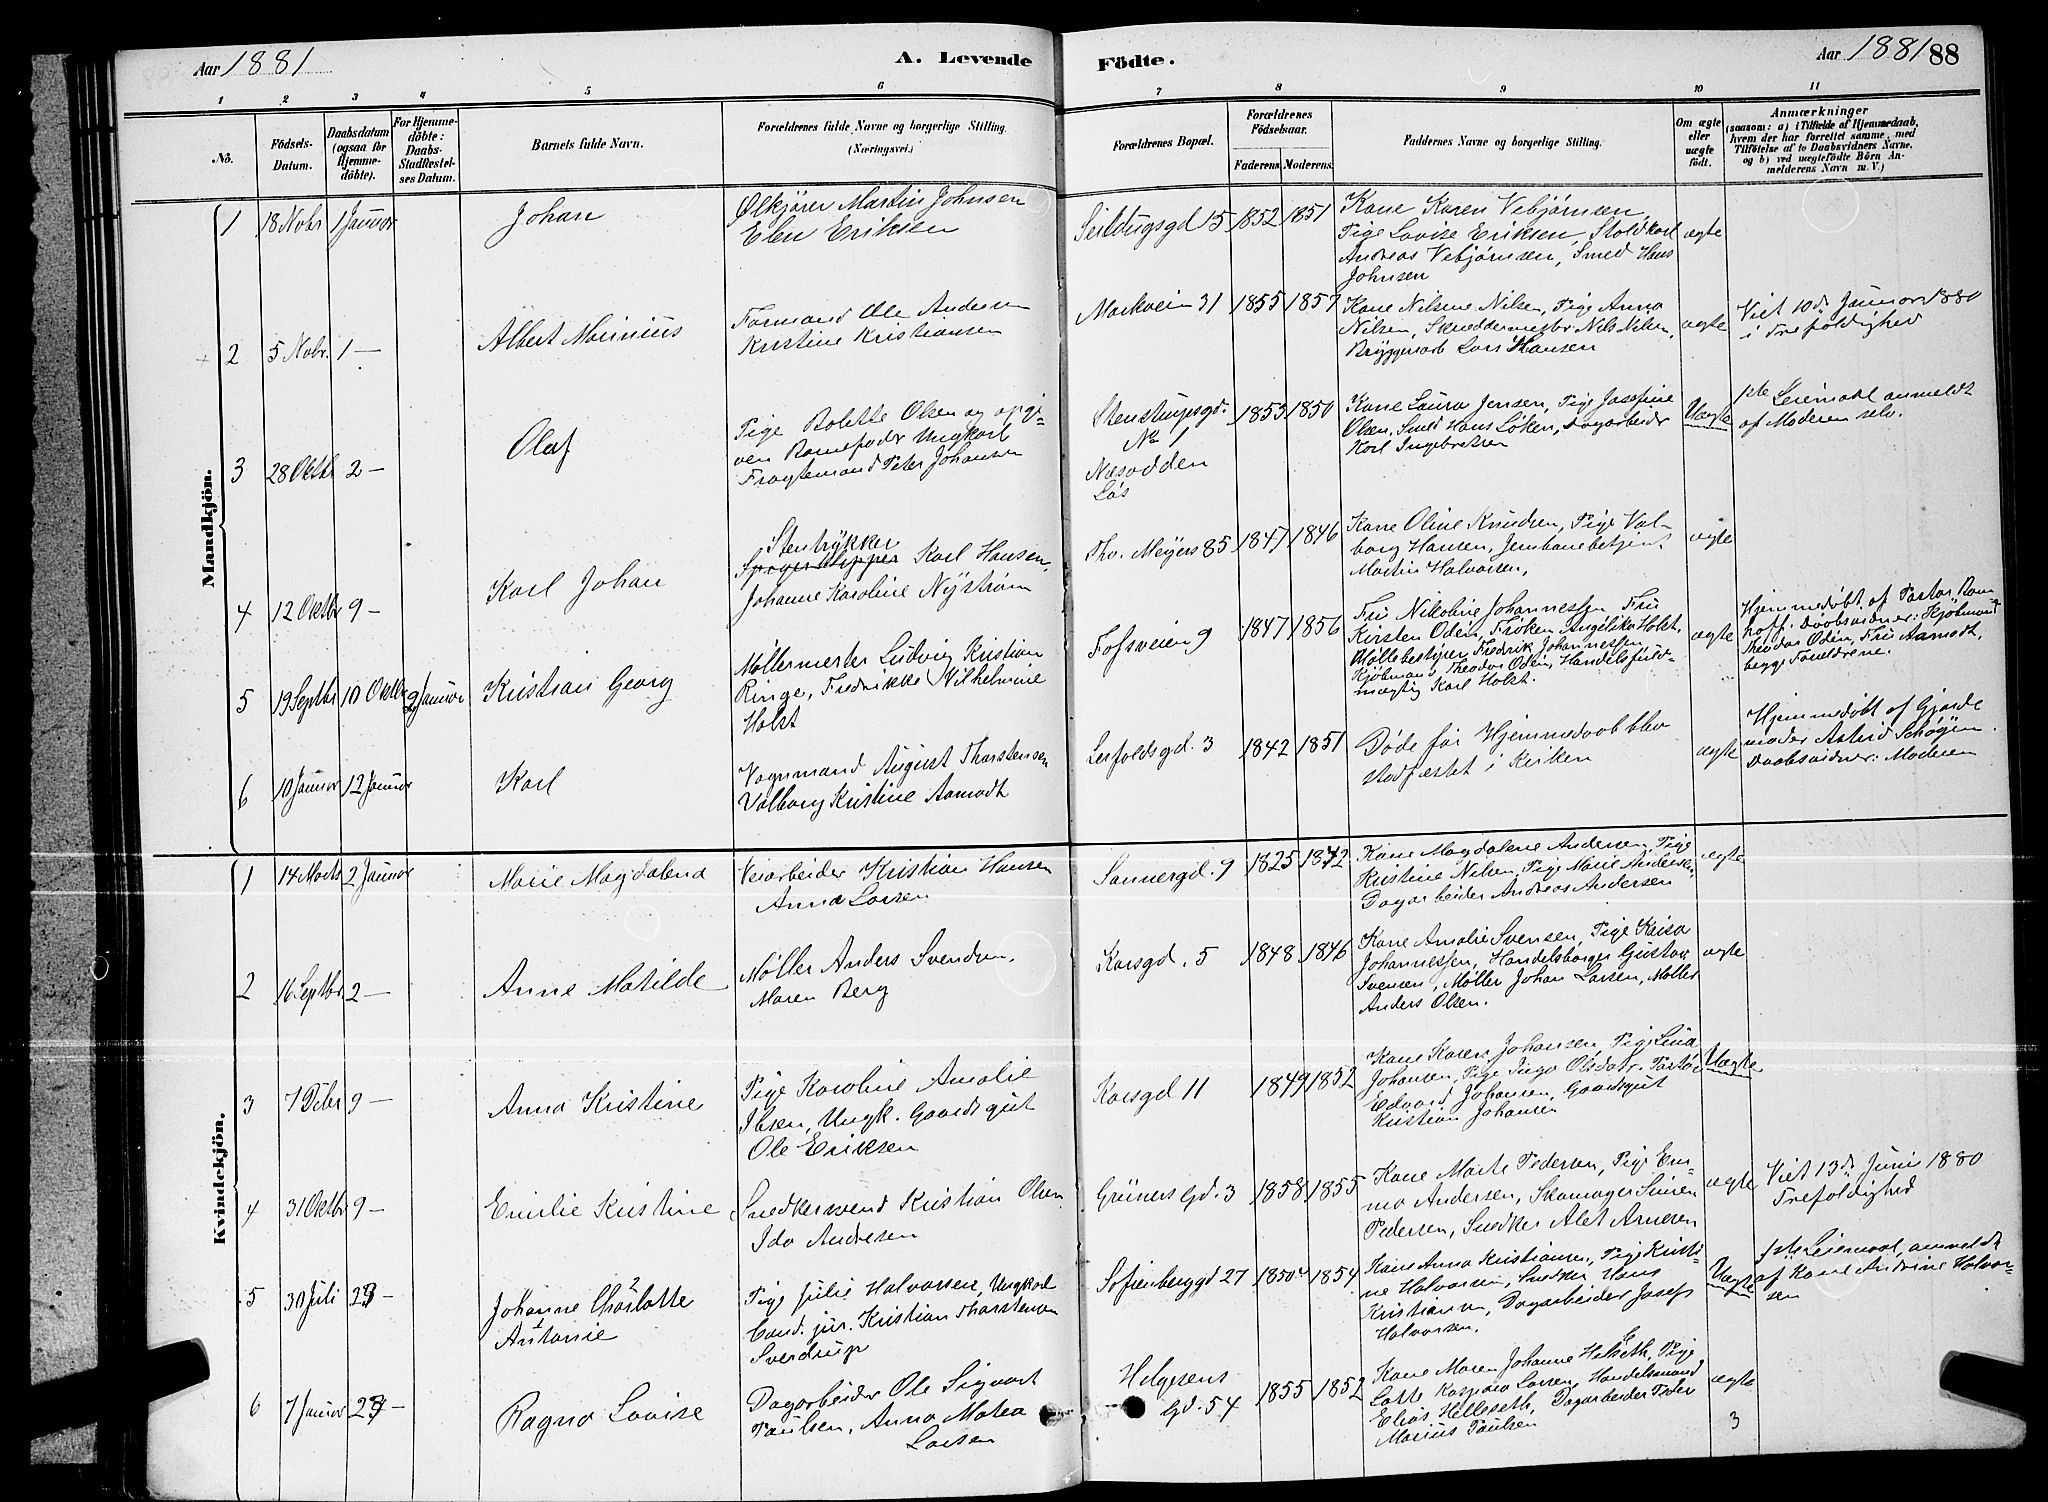 Aar 1881
A. Levende
Födte.
Aar 1881 88
1 2 3 4 5 6 7 8 9 10 11
No.
Födsels-
Datum.
Daabsdatum
(ogsaa for
Hjemme-
döbte).
For Hjemme-
döbte:
Daabs-
Stadfæstel-
ses Datum.
Barnets fulde Navn.
Forældrenes fulde Navne og borgerlige Stilling.
(Næringsvei.)
Forældrenes Bopæl.
Forældrenes
Födselsaar.
Faderens. Moderens.
Faddernes Navne og borgerlige Stilling.
Om ægte
eller
uægte
födt.
Anmærkninger
(saasom: a) i Tilfælde af Hjemmedaab,
hvem der har forrettet samme, med
Tilföielse af to Daabsvidners Navne,
og b) ved uægtefödte Börn An-
melderens Navn m. V.)
Mandkjön.
1 18 Nobr 1 Januar
Johan
Ølkjører Martin Johnsen
Elen Eriksen
Seildugsgd 15 1852 1851
Kone Karen Vebjørnsen,
Pige Lovise Eriksen, Stoldkarl
Andreas Vebjørnsen, Smed Hans
Johnsen
ægte
2 5 Nobr. 1 —
Albert Marinius
Formand Ole Andersen
Kristine Kristiansen
Markveien 31 1855 1857
Kone Nilsine Nilsen, Pige Anna
Nilsen, Skreddermester Nils Nilsen,
Bryggeriarb Lars Hansen
ægte
Viet 10de Januar 1880
i Trefoldighed
3 28 Oktbr 2 —
Olaf
Pige Bolette Olsen og opgi-
ven Barnefader Ungkarl
Fragtemand Peter Johansen
Stenstrupsgd.
No 1
Næsodden
Løs
1853 1850
Kone Laura Jensen, Pige Josefine
Olsen, Smed Hans Løken, Dagarbeider
Karl Ingebretsen
Uægte
1ste Leiermaal anmeldt
af Moderen selv.
4 12 Oktbr 9 —
Karl Johan
Stentrykker
Karl Hansen,
Johanne Karoline Nystrøm
Thv. Meyers 85 1847 1846
Kone Oline Knudsen, Pige Val-
borg Hansen, Jernbanebetjent
Martin Halvorsen,
ægte
5 19 Septbr 10 Oktbr 2 Januar
Kristian Georg
Møllermester Ludvig Kristian
Ringe, Fredrikke Vilhelmine
Holst
Fossveien 9 1847 1856
Fru Nikoline Johannessen, Fru
Kirsten Oden, Frøken Angelika Holst,
Møllebestyrer Fredrik Johannessen
Kjøbmand Theodor Oden, Handelsfuld-
mægtig Karl Holst.
ægte
Hjemmedøbt af Pastor Bom
hoff. Daabsvidner: Kjøbmand
Theodor Oden, Fru Aamodt,
begge Forældrene.
6 10 Januar 12 Januar
Karl
Vognmand August Thorstensen
Valborg Kristine Aamodt
Leifoldsgd. 3 1842 1851
Døde før Hjemmedaab blev
stadfæstet i Kirken
ægte
Hjemmedøbt af Gjorde
moder Astrid Schøyen.
Daabsvidner: Moderen
Kvindekjön.
1 14 Marts 2 Januar
Marie Magdalena
Veiarbeider Kristian Hansen
Anna Larsen
Sannergd. 9 1825 1842
Kone Magdalene Andersen, Pige
Kristine Nilsen, Pige Marie Andersen,
Dagarbeider Andreas Andersen
ægte
2 16 Septbr 2 —
Anne Matilde
Møller Anders Svendsen,
Maren Berg
Korsgd. 5 1848 1846
Kone Amalie Svensen, Pige Kaisa
Johannessen, Handelsborger Gustav
Svensen, Møller Johan Larsen, Møller
Anders Olsen.
ægte
3 7 Dcbr 9 —
Anna Kristine
Pige Karoline Amalie
Ibsen, Ungk. Gaardsgut
Ole Eriksen
Korsgd 11 1849 1852
Kone Karen Johansen, Pige Lina
Johansen, Pige Inga Olsdatr.
Edvard Johansen, Gaardsgut
Kristian Johansen
Uægte
4 31 Oktbr 9 —
Emilie Kristine
Snedkersvend Kristian Olsen
Ida Andresen
Grüners Gd. 3 1858 1855
Kone Marte Pedersen, Pige Em-
ma Andersen, Skomager Simen
Pedersen, Snedker Alet Arnesen
ægte
Viet 13de Juni 1880
Trefoldighed
5 30 Juli 23 —
Johanne Charlotte
Antonie
Pige Julie Halvorsen, Ungkarl
Cand. jur. Kristian Thorstensen
Sverdrup
Sofienberggd 27 1850 1854
Kone Anna Kristiansen, Pige Kristi-
ne Halvorsen, Snedker Hans
Kristiansen, Dagarbeider Josef
Halvorsen.
Uægte
1ste Leiermaal, anmeldt
af Kone Andrine Halvor-
sen
6 7 Januar 23 —
Ragna Lovise
Dagarbeider Ole Sigvart
Paulsen, Anna Matea
Larsen
Helgesens
Gd. 54 1855 1852
Kone Maren Johanne Helseth, Pige
Lotte Kaspara Larsen, Handelsmand
Elias Helleseth, Dagarbeider Peder
Marius Paulsen
ægte
3